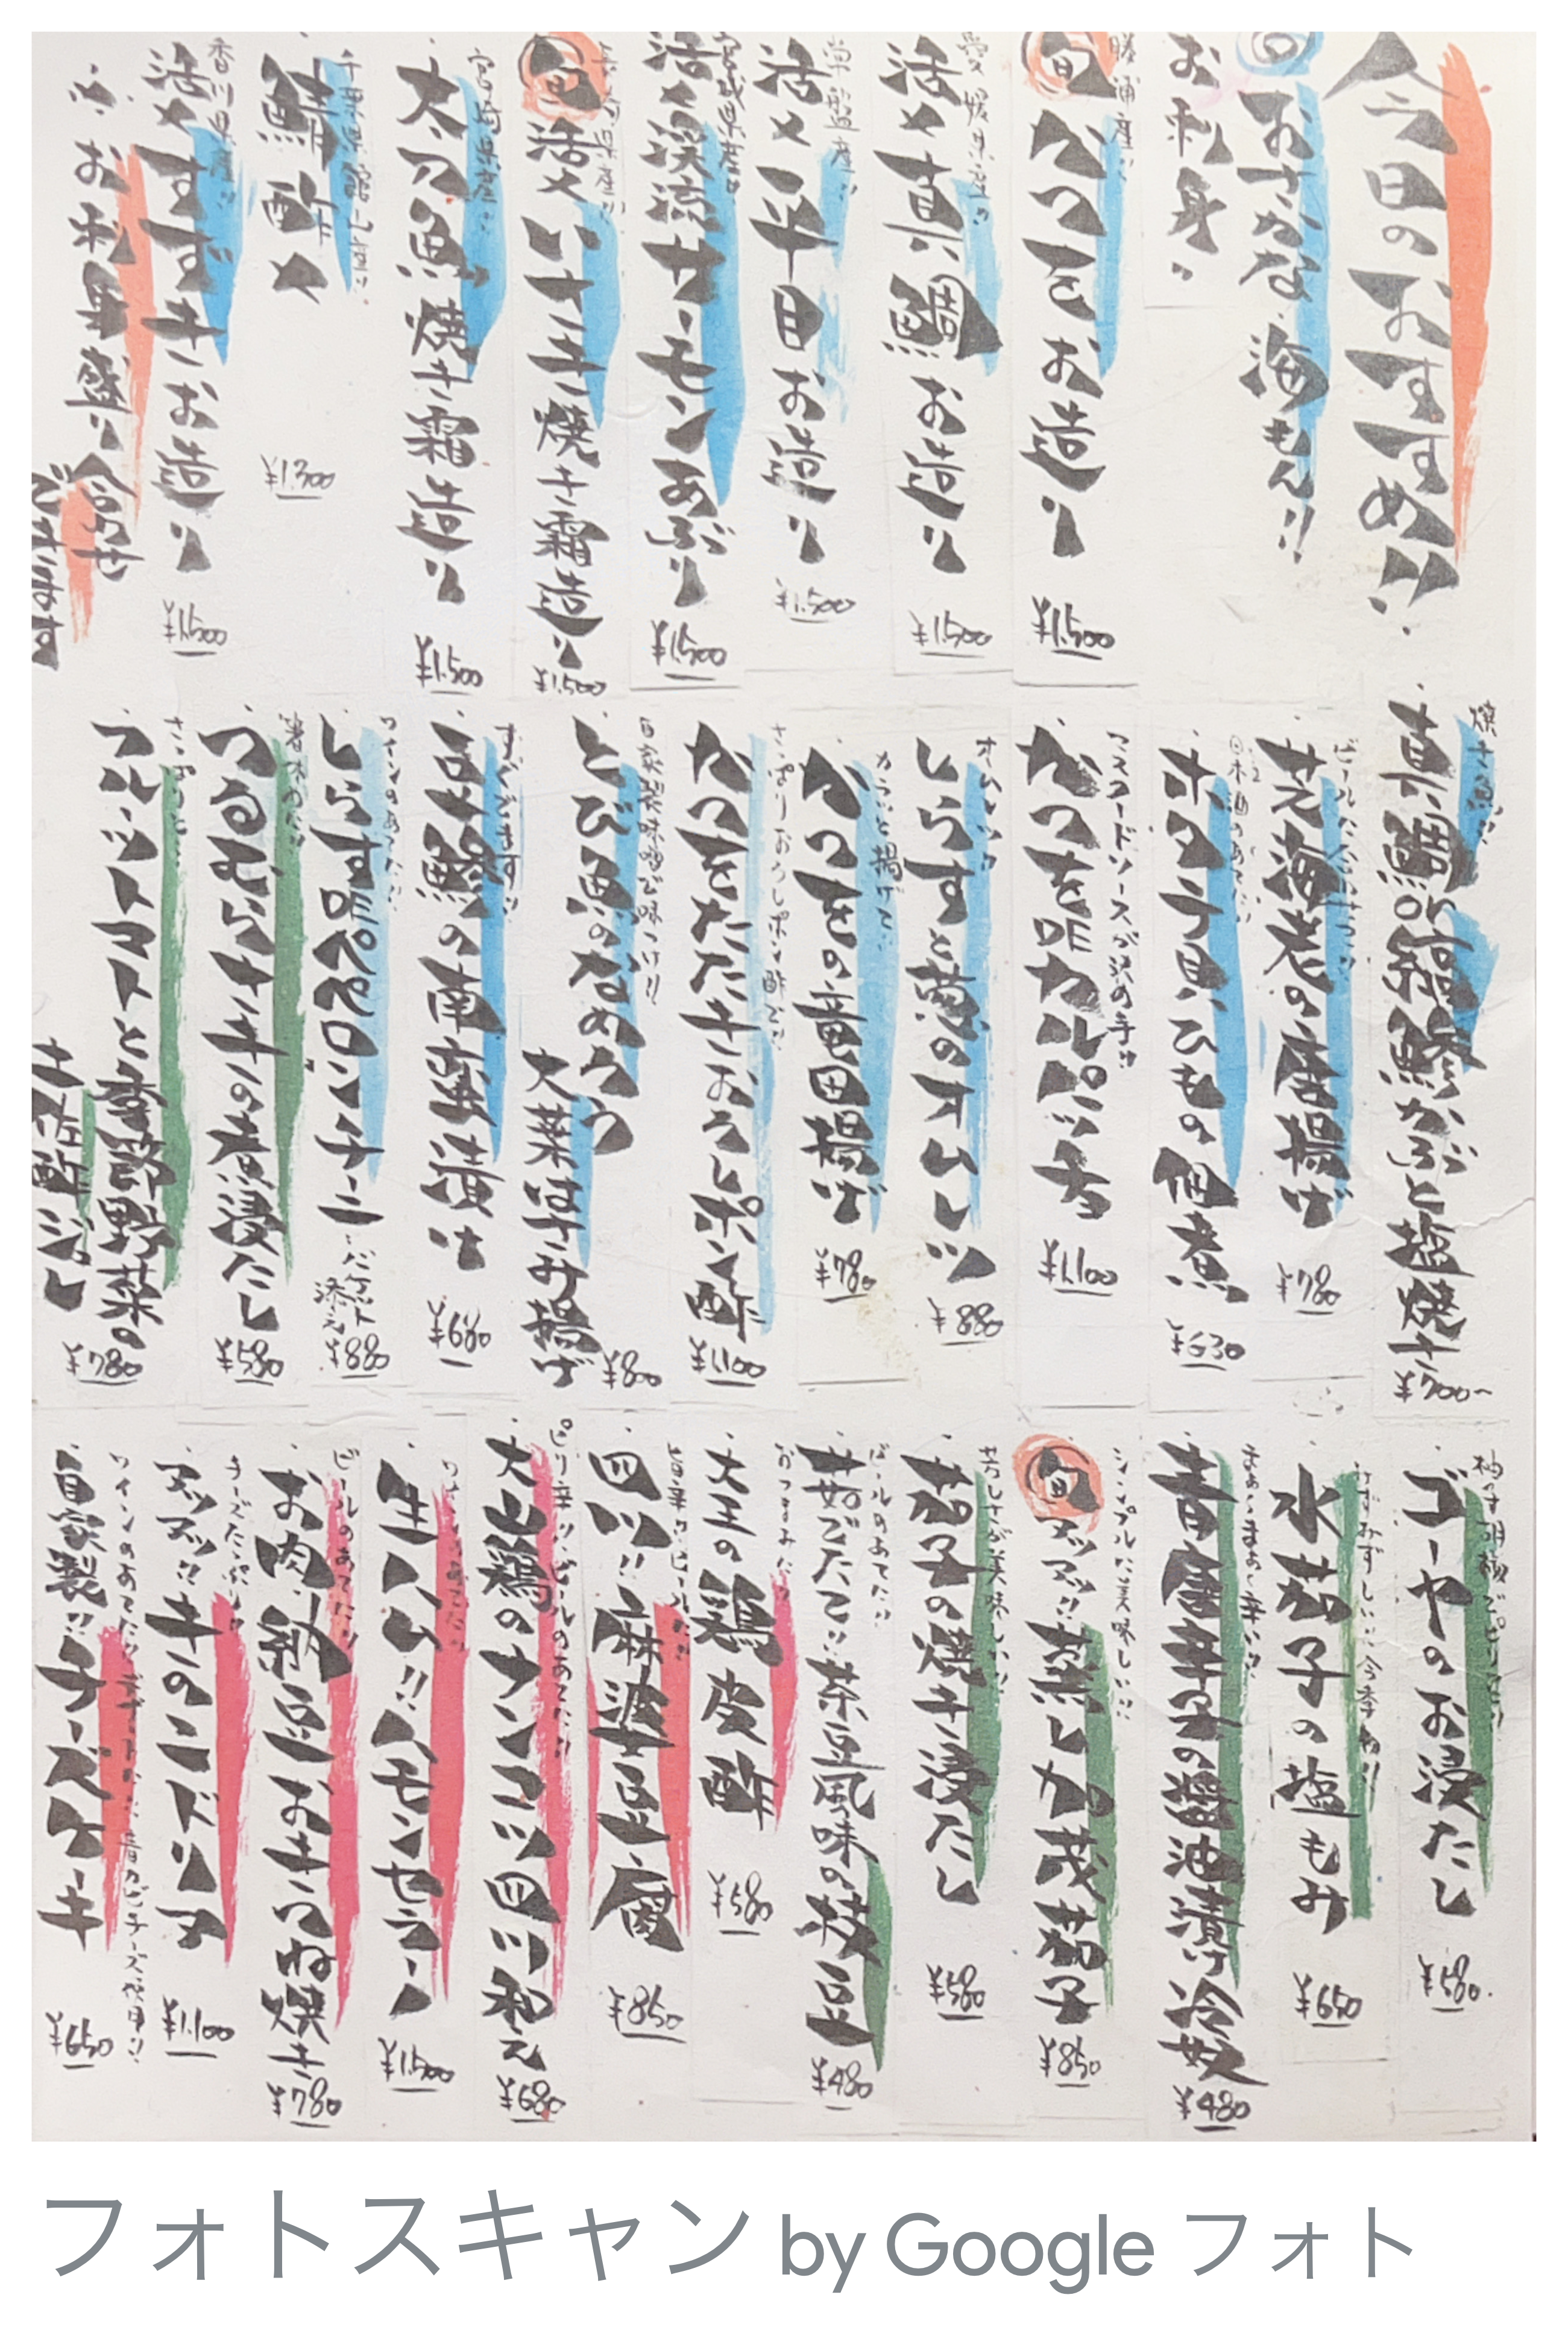 今日のおすすめ!!
おさかな、海もん!!
お刺身
勝浦産!!
旬
かつをお造り
¥1,500
愛媛県産!!
活〆真鯛お造り
¥1,500
常磐産!!
活〆平目お造り
¥1,500
宮城県産!!
活〆渓流サーモンあぶり
¥1,500
旬
活〆いさき焼き霜造り
¥1,500
宮崎県産!!
太刀魚焼き霜造り
¥1,500
千葉県館山産!!
鯖酢〆
¥1,300
香川県産!!
活〆すずきお造り
¥1,500
お刺身盛り合わせ
できます
焼き魚!!
真鯛のかぶと塩焼き
¥700~
芝海老の唐揚げ
¥780
日本酒のあてに!!
ホタテ貝ひもの佃煮
¥630
マスタードソースが決め手!!
かつをDEカルパッチョ
¥1,100
オムレツ!!
しらすと葱のオムレツ
¥880
カラッと揚げて!!
かつをの竜田揚げ
¥780
さっぱりおろしポン酢で!!
かつをたたきおろしポン酢
¥1,100
自家製味噌で味つけ!!
とび魚のなめろう
大葉はさみ揚げ
¥80
すぐでます!!
豆鯵の南蛮漬け
¥680
ワインのあてに!!
しらすDEペペロンチーニ
バケット
添え
¥880
箸休めに!!
つるむらさきの煮浸たし
¥580
さっぱりと!!
フルーツトマトと季節野菜の
土佐酢ジュレ
¥780
柚子胡椒でピリッと!!
ゴーヤのお浸たし
¥580
みずみずしい!!今季初!!
水茄子の塩もみ
¥650
まぁ、まぁ、辛い!!
青唐辛子の醤油漬け冷奴
¥480
シンプルに美味しい!!
旬
アツアツ!!蒸し加茂茄子
¥850
茄子の焼き浸たし
¥580
ビールのあてに!!
茹でたて!!茶豆風味の枝豆
¥480
おつまみに!!
大王の鶏皮酢
¥580
旨辛!!ビールに!!
四川!!麻婆豆腐
¥850
ピリ辛!!ビールのあてに!!
大山鶏のナンコツ四川和え
¥680
生ハム!!ハモンセラーノ
¥1,500
ビールのあてに!!
お肉、納豆おきつね焼き
¥780
チーズたっぷり!!
アツアツ!!キのこドリア
¥1,100
ワインのあてに!!デザートに!!青カビチーズ使用!!
自家製!!チーズケーキ
¥650
フォトスキャン by Google フォト